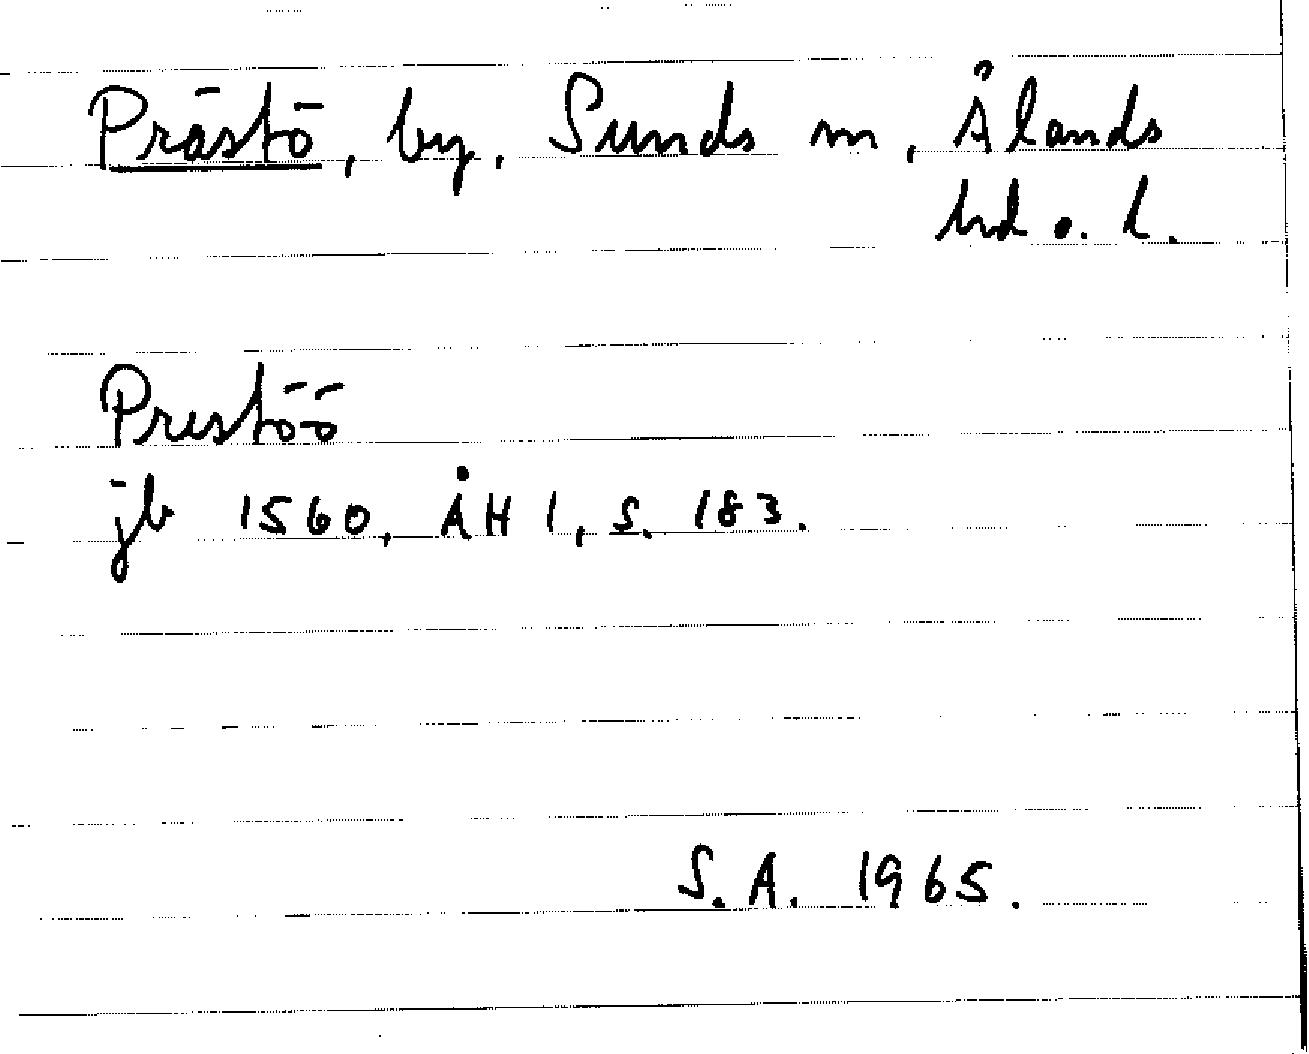 Prästö, by, Sunds sn, Ålands
hd o. l.
Prestöö
jb 1560, ÅH 1, s. 183.
S.A. 1965.